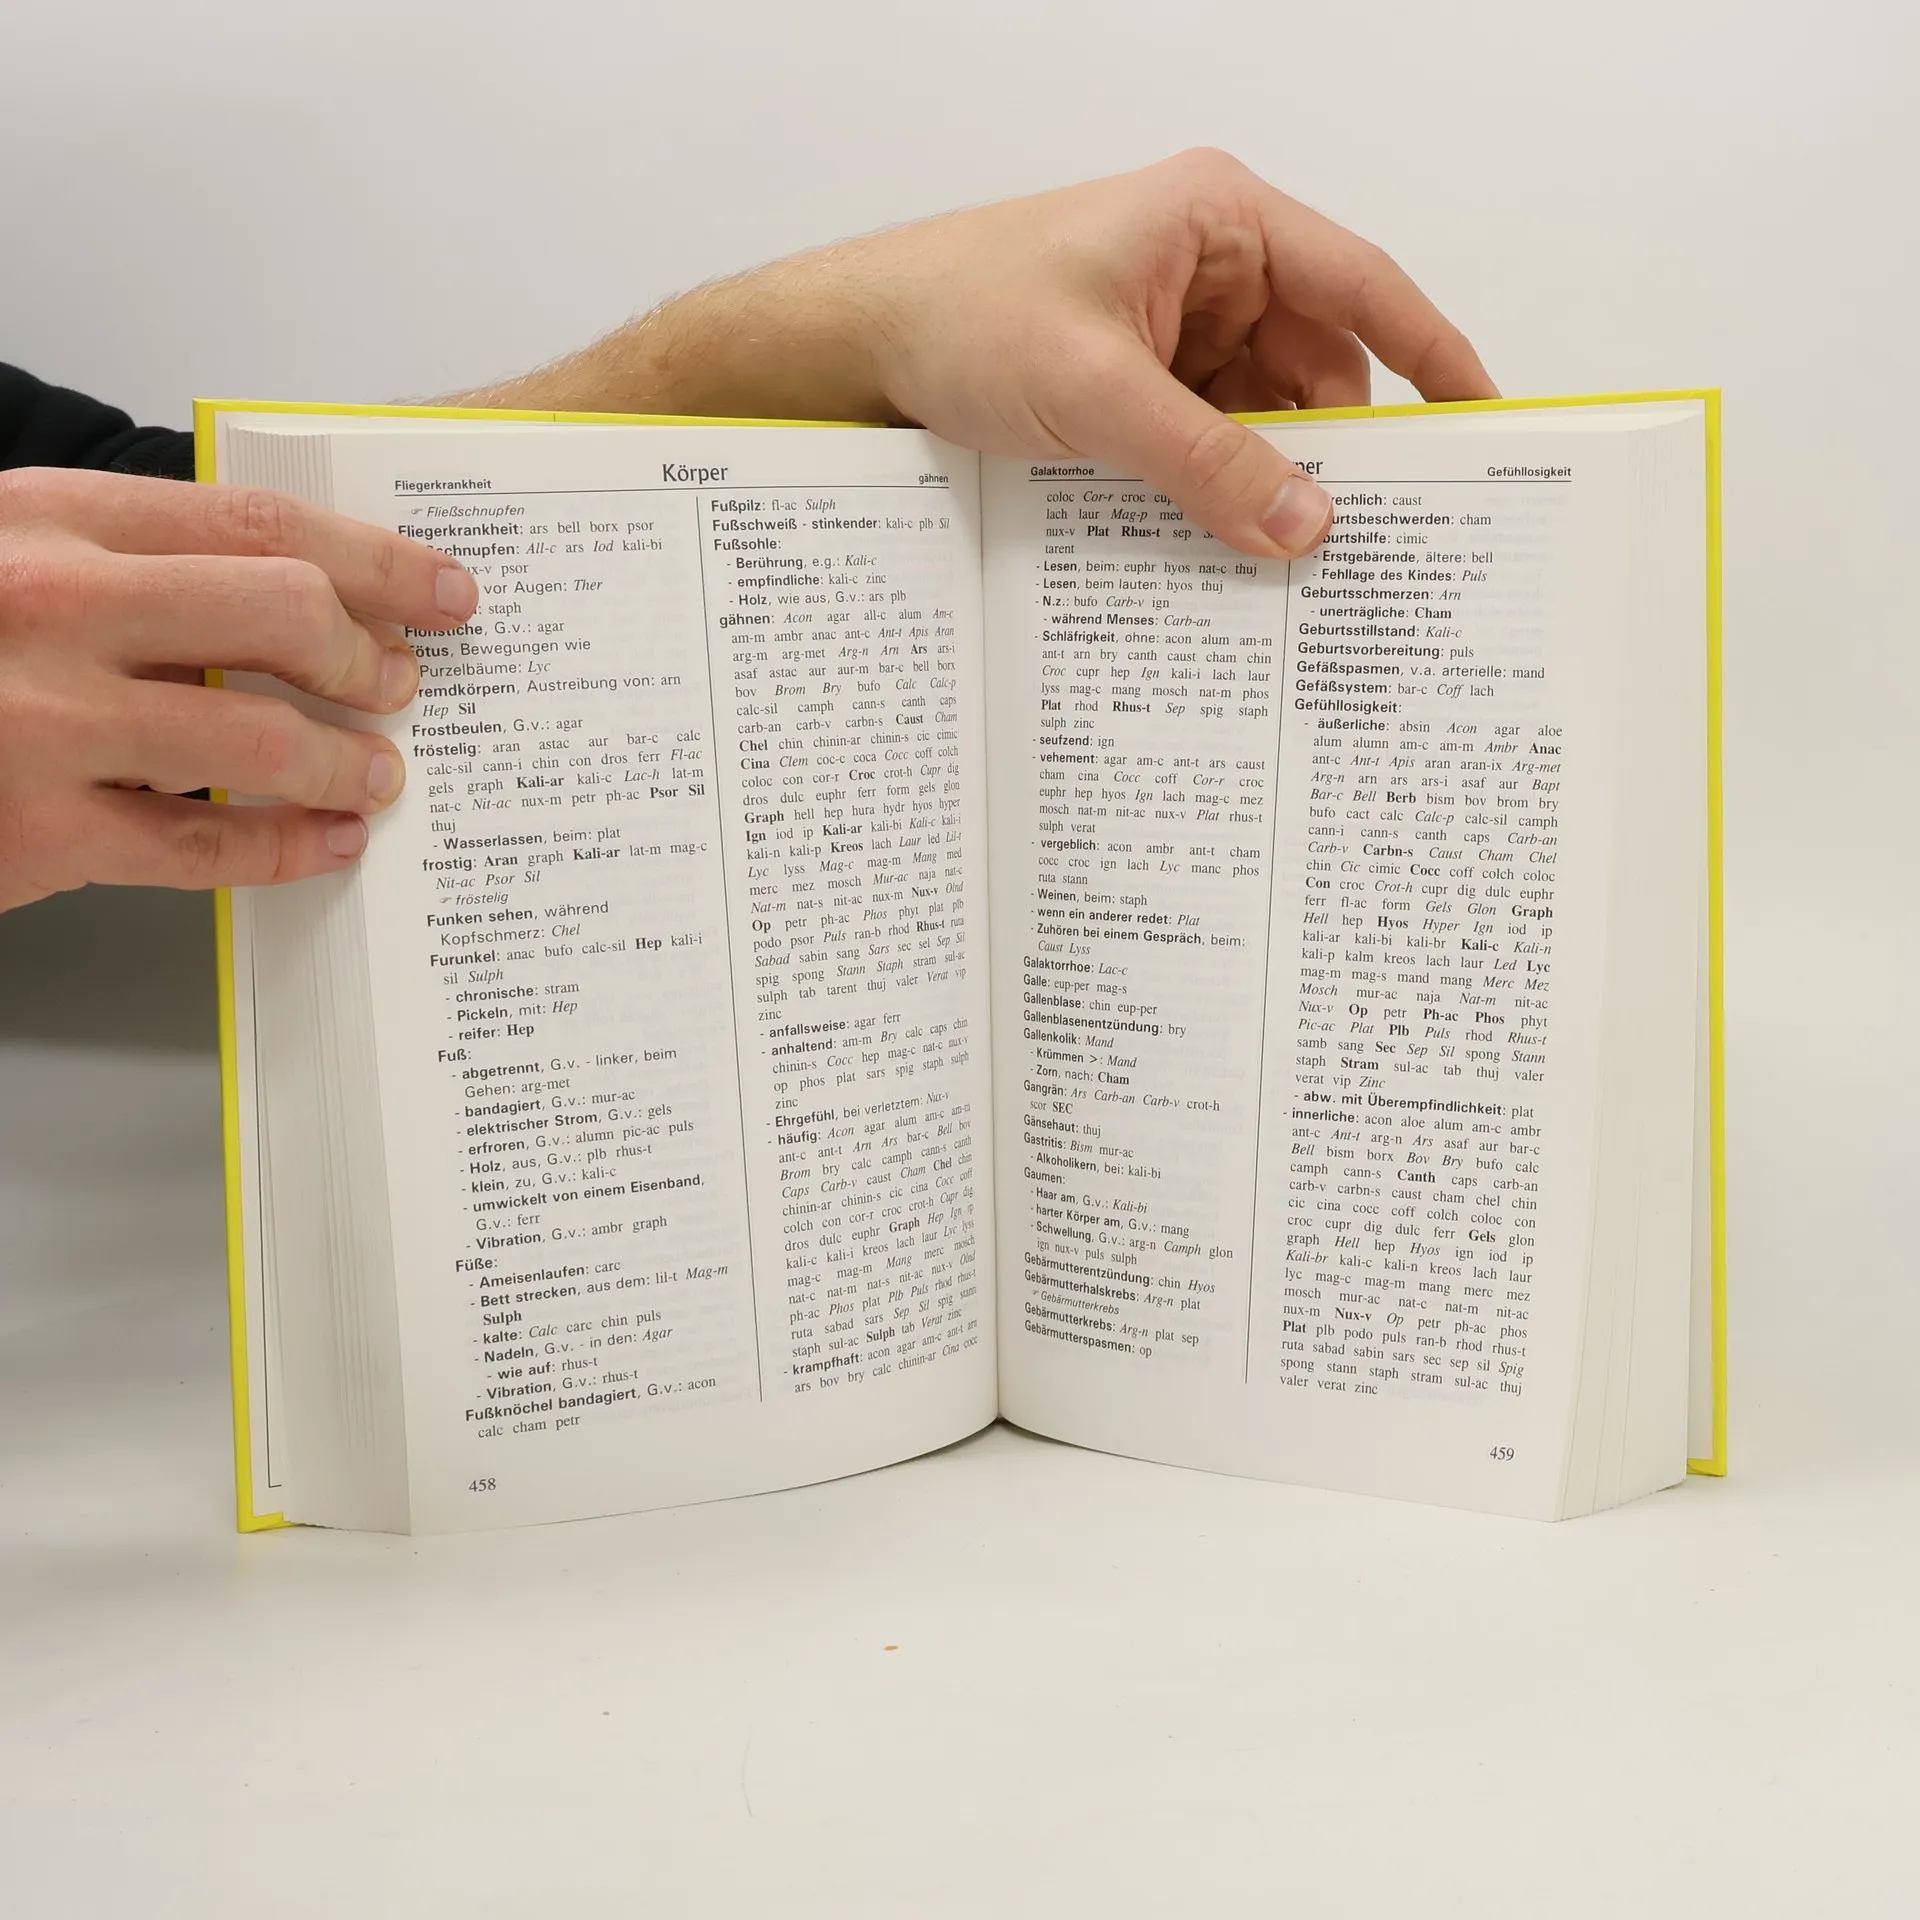 Fliegerkrankheit Körper gähnen
☞ Fließschnupfen
Fliegerkrankheit: ars bell borx psor
schnupfen: All-c ars Iod kali-bi
psor
vor Augen: Ther
: staph
Flohstiche, G.v.: agar
Fötus, Bewegungen wie
Purzelbäume: Lyc
remdkörpern, Austreibung von: arn
Hep Sil
Frostbeulen, G.v.: agar
fröstelig: aran astac aur bar-c calc
calc-sil cann-i chin con dros ferr Fl-ac
gels graph Kali-ar kali-c Lac-h lat-m
nat-c Nit-ac nux-m petr ph-ac Psor Sil
thuj
- Wasserlassen, beim: plat
frostig: Aran graph Kali-ar lat-m mag-c
Nit-ac Psor Sil
☞ fröstelig
Funken sehen, während
Kopfschmerz: Chel
Furunkel: anac bufo calc-sil Hep kali-i
sil Sulph
- chronische: stram
- Pickeln, mit: Hep
- reifer: Hep
Fuß:
- abgetrennt, G.v. - linker, beim
Gehen: arg-met
- bandagiert, G.v.: mur-ac
- elektrischer Strom, G.v.: gels
- erfroren, G.v.: alumn pic-ac puls
- Holz, aus, G.v.: plb rhus-t
- klein, zu, G.v.: kali-c
- umwickelt von einem Eisenband,
G.v.: ferr
- Vibration, G.v.: ambr graph
Füße:
- Ameisenlaufen: carc
- Bett strecken, aus dem: lil-t Mag-m
Sulph
- kalte: Calc carc chin puls
- Nadeln, G.v. - in den: Agar
- wie auf: rhus-t
- Vibration, G.v.: rhus-t
Fußknöchel bandagiert, G.v.: acon
calc cham petr
458
Fußpilz: fl-ac Sulph
Fußschweiß - stinkender: kali-c plb Sil
Fußsohle:
- Berührung, e.g.: Kali-c
- empfindliche: kali-c zinc
- Holz, wie aus, G.v.: ars plb
gähnen: Acon agar all-c alum Am-c
am-m ambr anac ant-c Ant-t Apis Aran
arg-m arg-met Arg-n Arn Ars ars-i
asaf astac aur aur-m bar-c bell borx
bov Brom Bry bufo Calc Calc-p
calc-sil camph cann-s canth caps
carb-an carb-v carbn-s Caust Cham
Chel chin chinin-ar chinin-s cic cimic
Cina Clem coc-c coca Cocc coff colch
coloc con cor-r Croc crot-h Cupr dig
dros dulc euphr ferr form gels glon
Graph hell hep hura hydr hyos hyper
Ign iod ip Kali-ar kali-bi Kali-c kali-i
kali-n kali-p Kreos lach Laur led Lil-t
Lyc lyss Mag-c mag-m Mang med
merc mez mosch Mur-ac naja nat-c
Nat-m nat-s nit-ac nux-m Nux-v Olnd
Op petr ph-ac Phos phyt plat plb
podo psor Puls ran-b rhod Rhus-t ruta
Sabad sabin sang Sars sec sel Sep Sil
spig spong Stann Staph stram sul-ac
sulph tab tarent thuj valer Verat vip
zinc
- anfallsweise: agar ferr
- anhaltend: am-m Bry calc caps chin
chinin-s Cocc hep mag-c nat-c nux-v
op phos plat sars spig staph sulph
zinc
- Ehrgefühl, bei verletztem: Nux-v
- häufig: Acon agar alum am-c am-m
ant-c ant-t Arn Ars bar-c Bell bov
Brom bry calc camph cann-s canth
Caps Carb-v caust Cham Chel chin
chinin-ar chinin-s cic cina Cocc coff
colch con cor-r croc crot-h Cupr dig
dros dulc euphr Graph Hep Ign ip
kali-c kali-i kreos lach laur Lyc lyss
mag-c mag-m Mang merc mosch
nat-c nat-m nat-s nit-ac nux-v Olnd
ph-ac Phos plat Plb Puls rhod rhus-t
ruta sabad sars Sep Sil spig stann
staph sul-ac Sulph tab Verat zinc
- krampfhaft: acon agar am-c ant-t arn
ars bov bry calc chinin-ar Cina cocc
Galaktorrhoe per Gefühllosigkeit
coloc Cor-r croc cup
lach laur Mag-p med
nux-v Plat Rhus-t sep
tarent
- Lesen, beim: euphr hyos nat-c thuj
- Lesen, beim lauten: hyos thuj
- N.z.: bufo Carb-v ign
- während Menses: Carb-an
- Schläfrigkeit, ohne: acon alum am-m
ant-t arn bry canth caust cham chin
Croc cupr hep Ign kali-i lach laur
lyss mag-c mang mosch nat-m phos
Plat rhod Rhus-t Sep spig staph
sulph zinc
- seufzend: ign
- vehement: agar am-c ant-t ars caust
cham cina Cocc coff Cor-r croc
euphr hep hyos Ign lach mag-c mez
mosch nat-m nit-ac nux-v Plat rhus-t
sulph verat
- vergeblich: acon ambr ant-t cham
cocc croc ign lach Lyc manc phos
ruta stann
- Weinen, beim: staph
- wenn ein anderer redet: Plat
- Zuhören bei einem Gespräch, beim:
Caust Lyss
Galaktorrhoe: Lac-c
Galle: eup-per mag-s
Gallenblase: chin eup-per
Gallenblasenentzündung: bry
Gallenkolik: Mand
- Krümmen >: Mand
- Zorn, nach: Cham
Gangrän: Ars Carb-an Carb-v crot-h
scor SEC
Gänsehaut: thuj
Gastritis: Bism mur-ac
- Alkoholikern, bei: kali-bi
Gaumen:
- Haar am, G.v.: Kali-bi
- harter Körper am, G.v.: mang
- Schwellung, G.v.: arg-n Camph glon
ign nux-v puls sulph
Gebärmutterentzündung: chin Hyos
Gebärmutterhalskrebs: Arg-n plat
☞ Gebärmutterkrebs
Gebärmutterkrebs: Arg-n plat sep
Gebärmutterspasmen: op
rechlich: caust
urtsbeschwerden: cham
burtshilfe: cimic
- Erstgebärende, ältere: bell
- Fehllage des Kindes: Puls
Geburtsschmerzen: Arn
- unerträgliche: Cham
Geburtsstillstand: Kali-c
Geburtsvorbereitung: puls
Gefäßspasmen, v.a. arterielle: mand
Gefäßsystem: bar-c Coff lach
Gefühllosigkeit:
- äußerliche: absin Acon agar aloe
alum alumn am-c am-m Ambr Anac
ant-c Ant-t Apis aran aran-ix Arg-met
Arg-n arn ars ars-i asaf aur Bapt
Bar-c Bell Berb bism bov brom bry
bufo cact calc Calc-p calc-sil camph
cann-i cann-s canth caps Carb-an
Carb-v Carbn-s Caust Cham Chel
chin Cic cimic Cocc coff colch coloc
Con croc Crot-h cupr dig dulc euphr
ferr fl-ac form Gels Glon Graph
Hell hep Hyos Hyper Ign iod ip
kali-ar kali-bi kali-br Kali-c Kali-n
kali-p kalm kreos lach laur Led Lyc
mag-m mag-s mand mang Merc Mez
Mosch mur-ac naja Nat-m nit-ac
Nux-v Op petr Ph-ac Phos phyt
Pic-ac Plat Plb Puls rhod Rhus-t
samb sang Sec Sep Sil spong Stann
staph Stram sul-ac tab thuj valer
verat vip Zinc
- abw. mit Überempfindlichkeit: plat
- innerliche: acon aloe alum am-c ambr
ant-c Ant-t arg-n Ars asaf aur bar-c
Bell bism borx Bov Bry bufo calc
camph cann-s Canth caps carb-an
carb-v carbn-s caust cham chel chin
cic cina cocc coff colch coloc con
croc cupr dig dulc ferr Gels glon
graph Hell hep Hyos ign iod ip
Kali-br kali-c kali-n kreos lach laur
lyc mag-c mag-m mang merc mez
mosch mur-ac nat-c nat-m nit-ac
nux-m Nux-v Op petr ph-ac phos
Plat plb podo puls ran-b rhod rhus-t
ruta sabad sabin sars sec sep sil Spig
spong stann staph stram sul-ac thuj
valer verat zinc
459